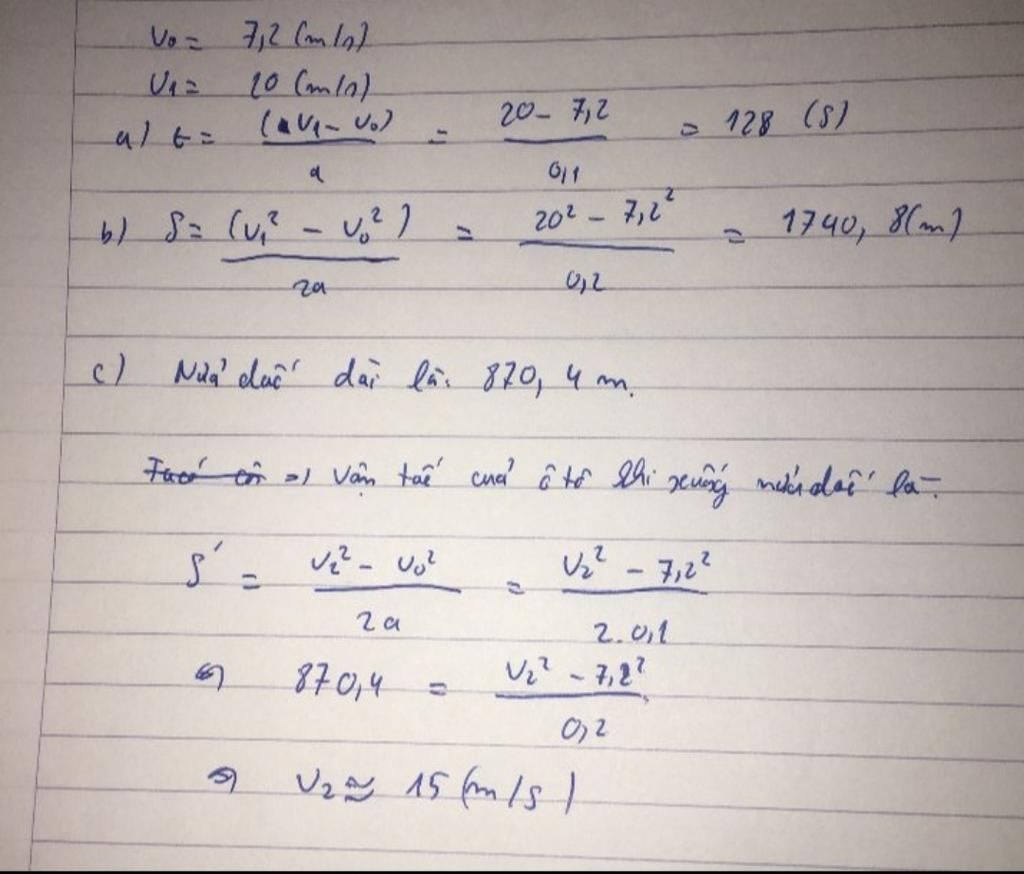 v₀ = 7,2 (m/s)
v₁ = 20 (m/s)
a) t = (v₁ - v₀) / a = 20 - 7,2 / 0,1 = 128 (s)
b) S = (v₁² - v₀²) / 2a = 20² - 7,2² / 0,2 = 1740,8(m)
c) Nửa dốc dài là: 870,4 m.
=) Vận tốc của ô tô khi xuống nửa dốc là:
S' = v₂² - v₀² / 2a = v₂² - 7,2² / 2.0,1
⇔ 870,4 = v₂² - 7,2² / 0,2
⇔ v₂ ≈ 15 (m/s)